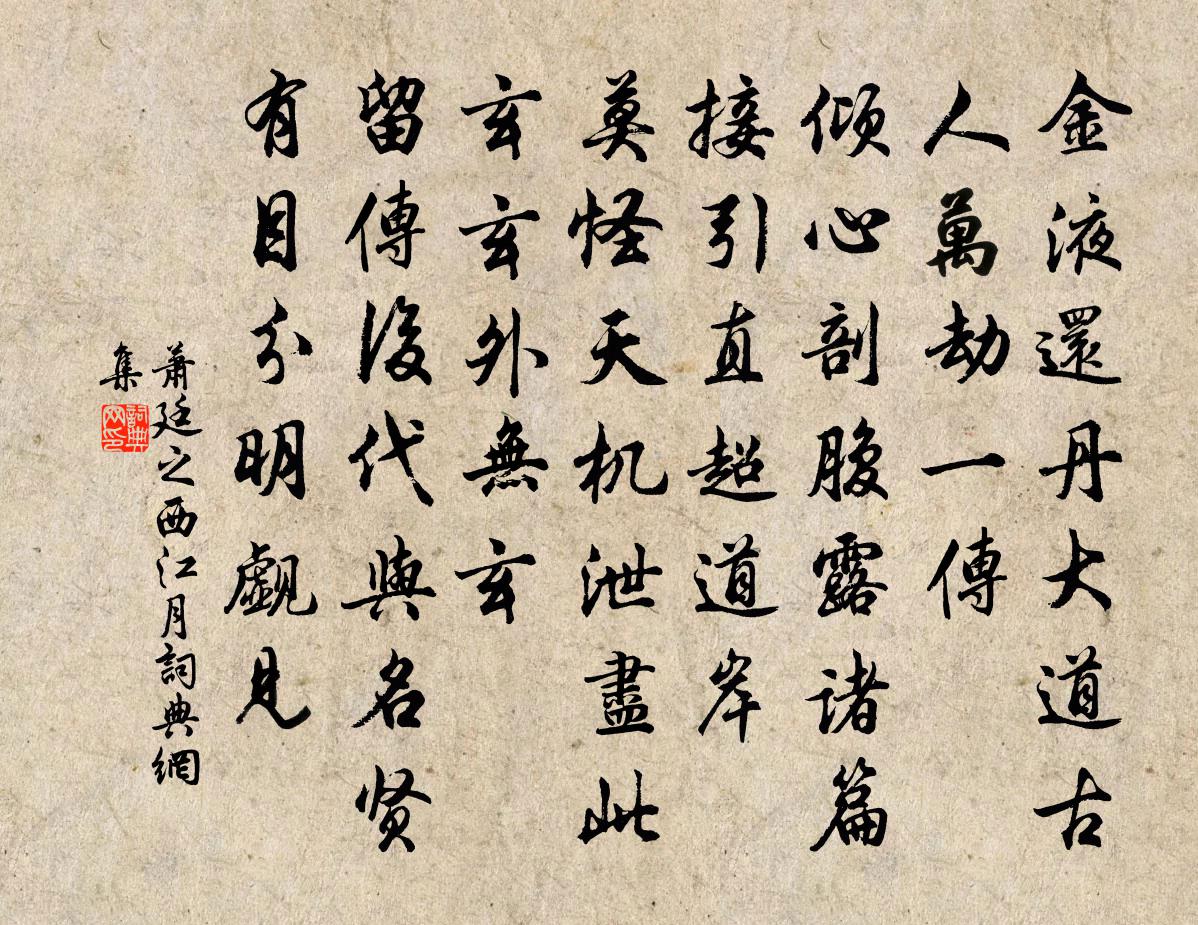 金液還丹大道古
人萬劫一傳
傾心剖腹露诸篇
接引直超道岸
莫怪天机泄盡此
玄玄外無玄
留傳後代與名贤
有目分明觑見
蕭廷之西江月詞典網
集
詞典网印